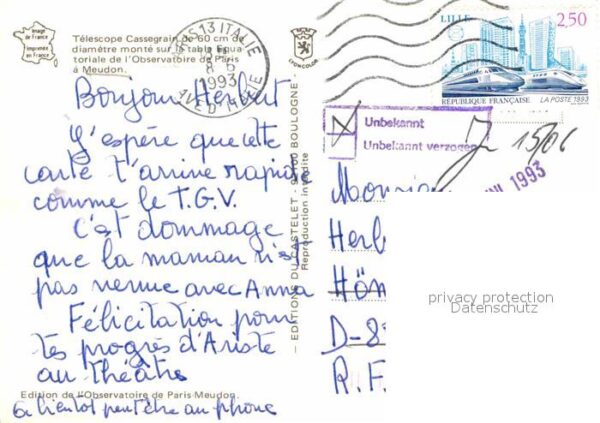 Image
de France
Imprimée
en France
Télescope Cassegrain de 60 cm de
diamètre monté sur la table équa
toriale de l'Observatoire de Paris
à Meudon.
LYONCOLOR
13 ITALIE
1993
LILLE
2,50
RÉPUBLIQUE FRANÇAISE LA POSTE 1993
Unbekannt
Unbekannt verzogen
15/06
1993
Bonjour Herbert
J'espère que cette
carte t'arrive rapide
comme le T.G.V.
C'est dommage
que la maman n'est
pas venue avec Anna
Félicitation pour
tes progrès d'Ariste
au théâtre
Edition de l'Observatoire de Paris-Meudon.
à bientôt peut être au phone
EDITIONS DU CASTELET - 92100 BOULOGNE
Reproduction interdite
Monsieur
Herb
Hön
D-8
R.F.
privacy protection
Datenschutz